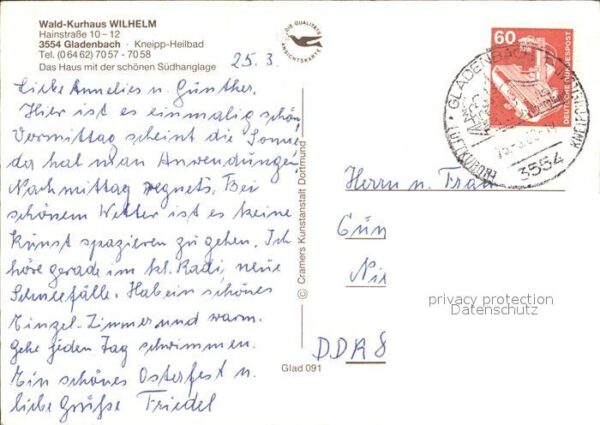 Wald-Kurhaus WILHELM
Hainstraße 10 – 12
3554 Gladenbach · Kneipp-Heilbad
Tel. (0 64 62) 70 57 - 70 58
Das Haus mit der schönen Südhanglage
DIE QUALITÄTS
ANSICHTSKARTE
25.3.
Liebe Annelies u. Günther.
Hier ist es einmalig schön,
Vormittag scheint die Sonne,
da hat man Anwendungen
Nachmittag regnets. Bei
schönem Wetter ist es keine
Kunst spazieren zu gehen. Ich
höre gerade im kl. Radi, neue
Schneefälle. Hab ein schönes
Einzel-Zimmer und warm.
Gehe jeden Tag schwimmen.
Ein schönes Osterfest u.
liebe Grüße Friedel
© Cramers Kunstanstalt Dortmund
Glad 091
60
DEUTSCHE BUNDESPOST
GLADENBACH
LUFTKURORT
3554
Herrn u. Frau
Gün
DDR 8
privacy protection
Datenschutz